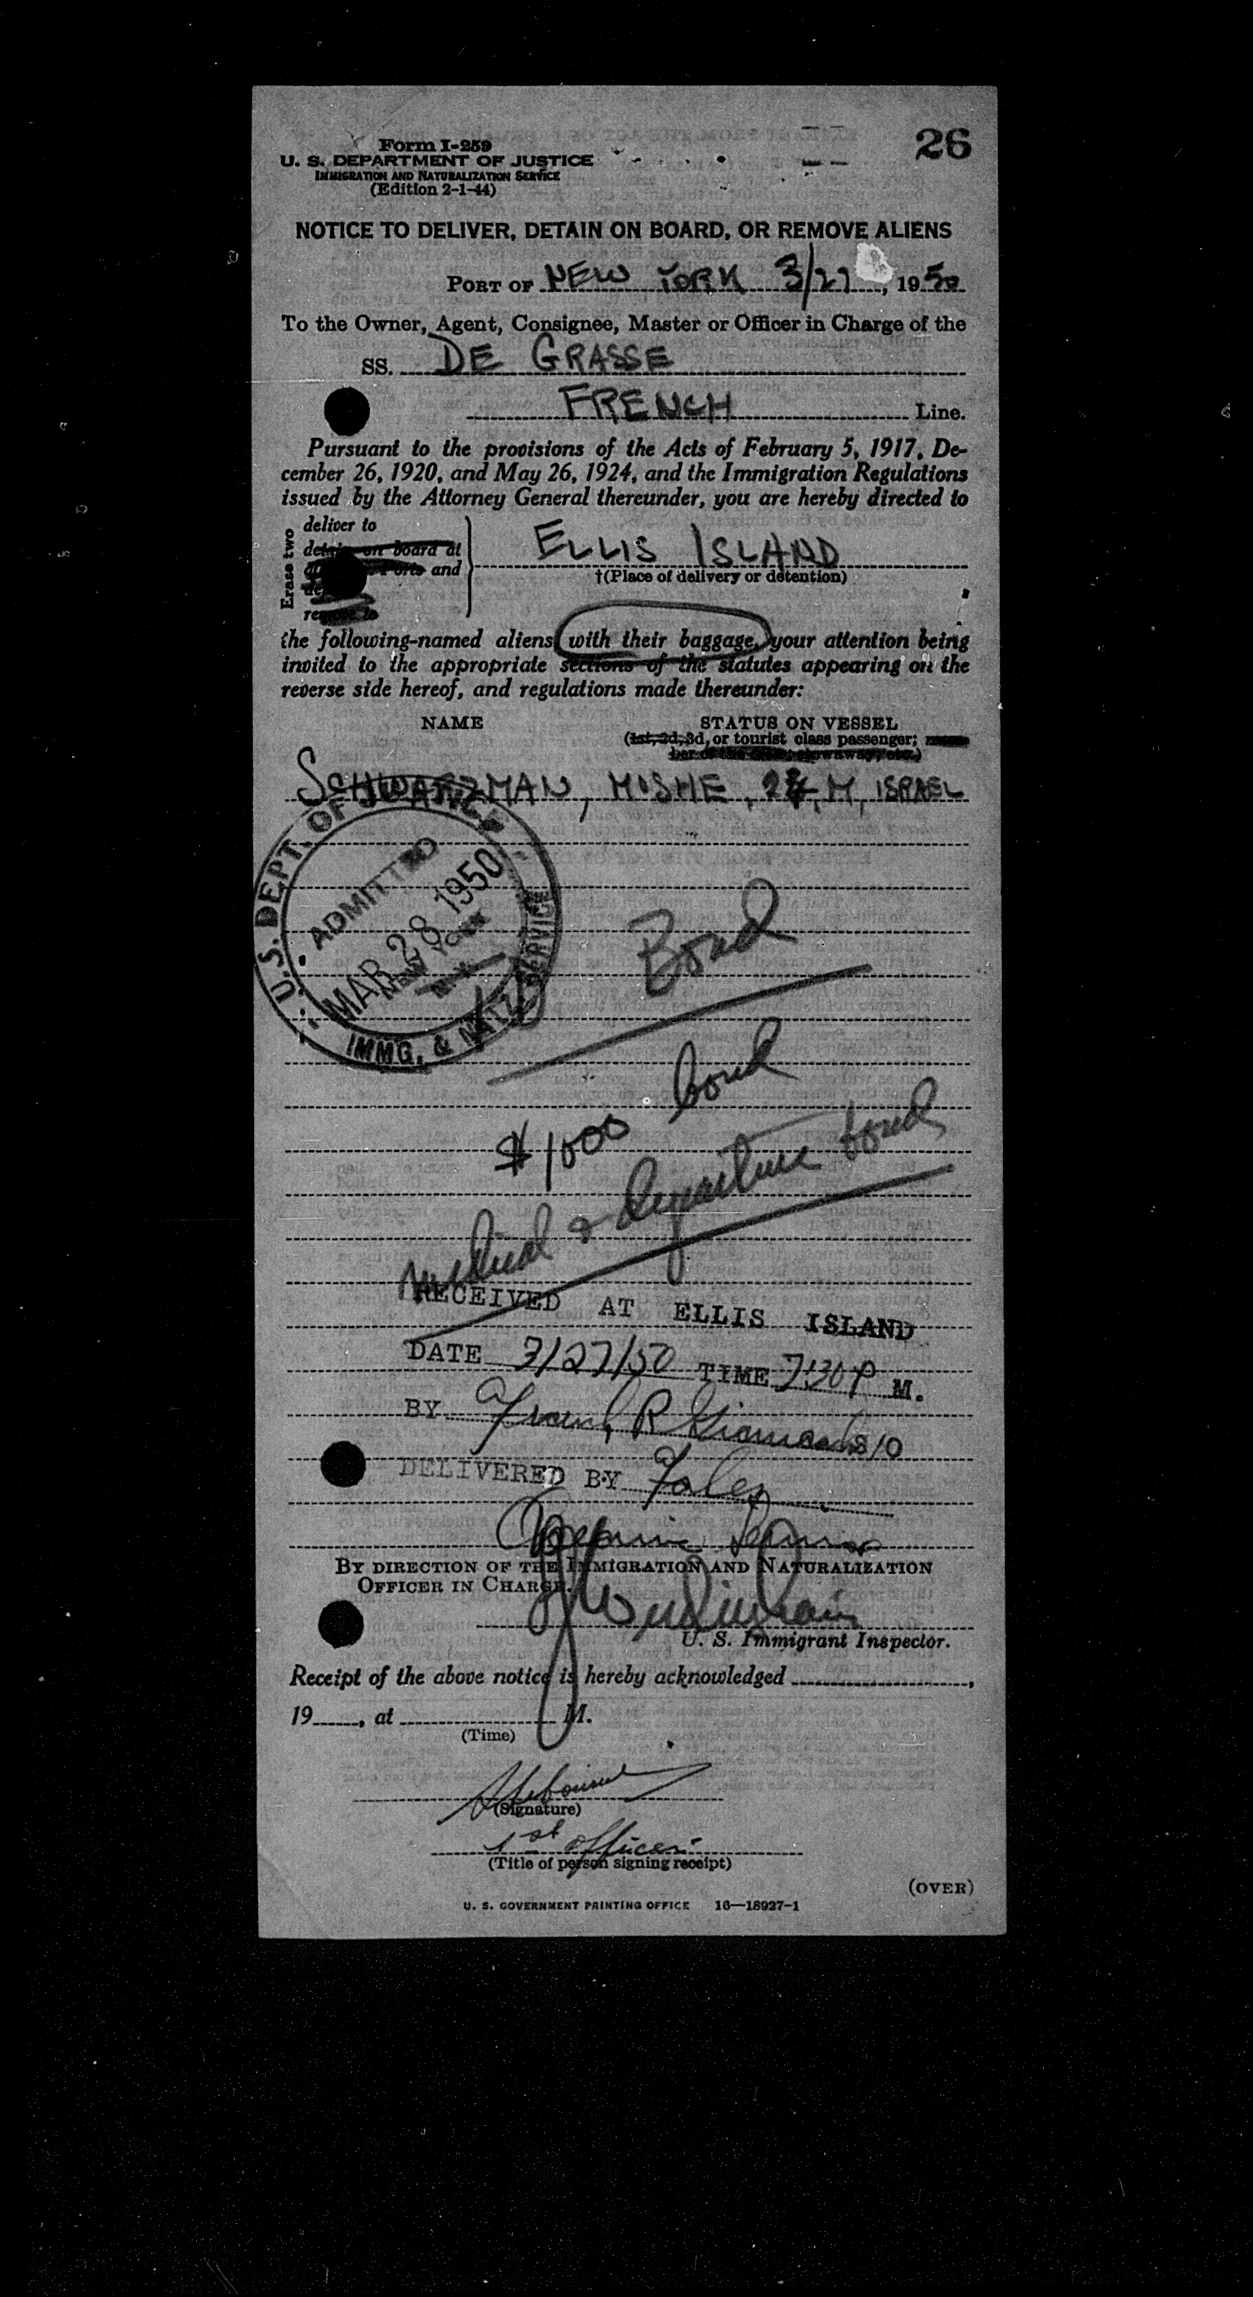 26
Form I-259
U. S. DEPARTMENT OF JUSTICE
IMMIGRATION AND NATURALIZATION SERVICE
(Edition 2-1-44)
NOTICE TO DELIVER, DETAIN ON BOARD, OR REMOVE ALIENS
PORT OF NEW YORK 3/27, 1950
To the Owner, Agent, Consignee, Master or Officer in Charge of the
SS. DE GRASSE
FRENCH Line.
Pursuant to the provisions of the Acts of February 5, 1917, De-
cember 26, 1920, and May 26, 1924, and the Immigration Regulations
issued by the Attorney General thereunder, you are hereby directed to
Erase two
deliver to
detain on board at
and
remove to
ELLIS ISLAND
†(Place of delivery or detention)
the following-named aliens with their baggage, your attention being
invited to the appropriate sections of the statutes appearing on the
reverse side hereof, and regulations made thereunder:
NAME STATUS ON VESSEL
(1st, 2d, 3d, or tourist class passenger;
SCHWARZMAN, MOSHE, M, ISRAEL
U.S. DEPT. OF JUSTICE
ADMITTED
MAR 28 1950
NEW YORK
N.Y.
IMMG. & NATZ. SERVICE
Bond
$1000 bond
medical & departure bond
RECEIVED AT ELLIS ISLAND
DATE 3/27/50 TIME 7:30 P M.
BY R S/O
DELIVERED BY
BY DIRECTION OF THE IMMIGRATION AND NATURALIZATION
OFFICER IN CHARGE.
U. S. Immigrant Inspector.
Receipt of the above notice is hereby acknowledged ,
19 , at M.
(Time)
(Signature)
1st officer
(Title of person signing receipt)
(OVER)
U. S. GOVERNMENT PRINTING OFFICE 16—18927-1